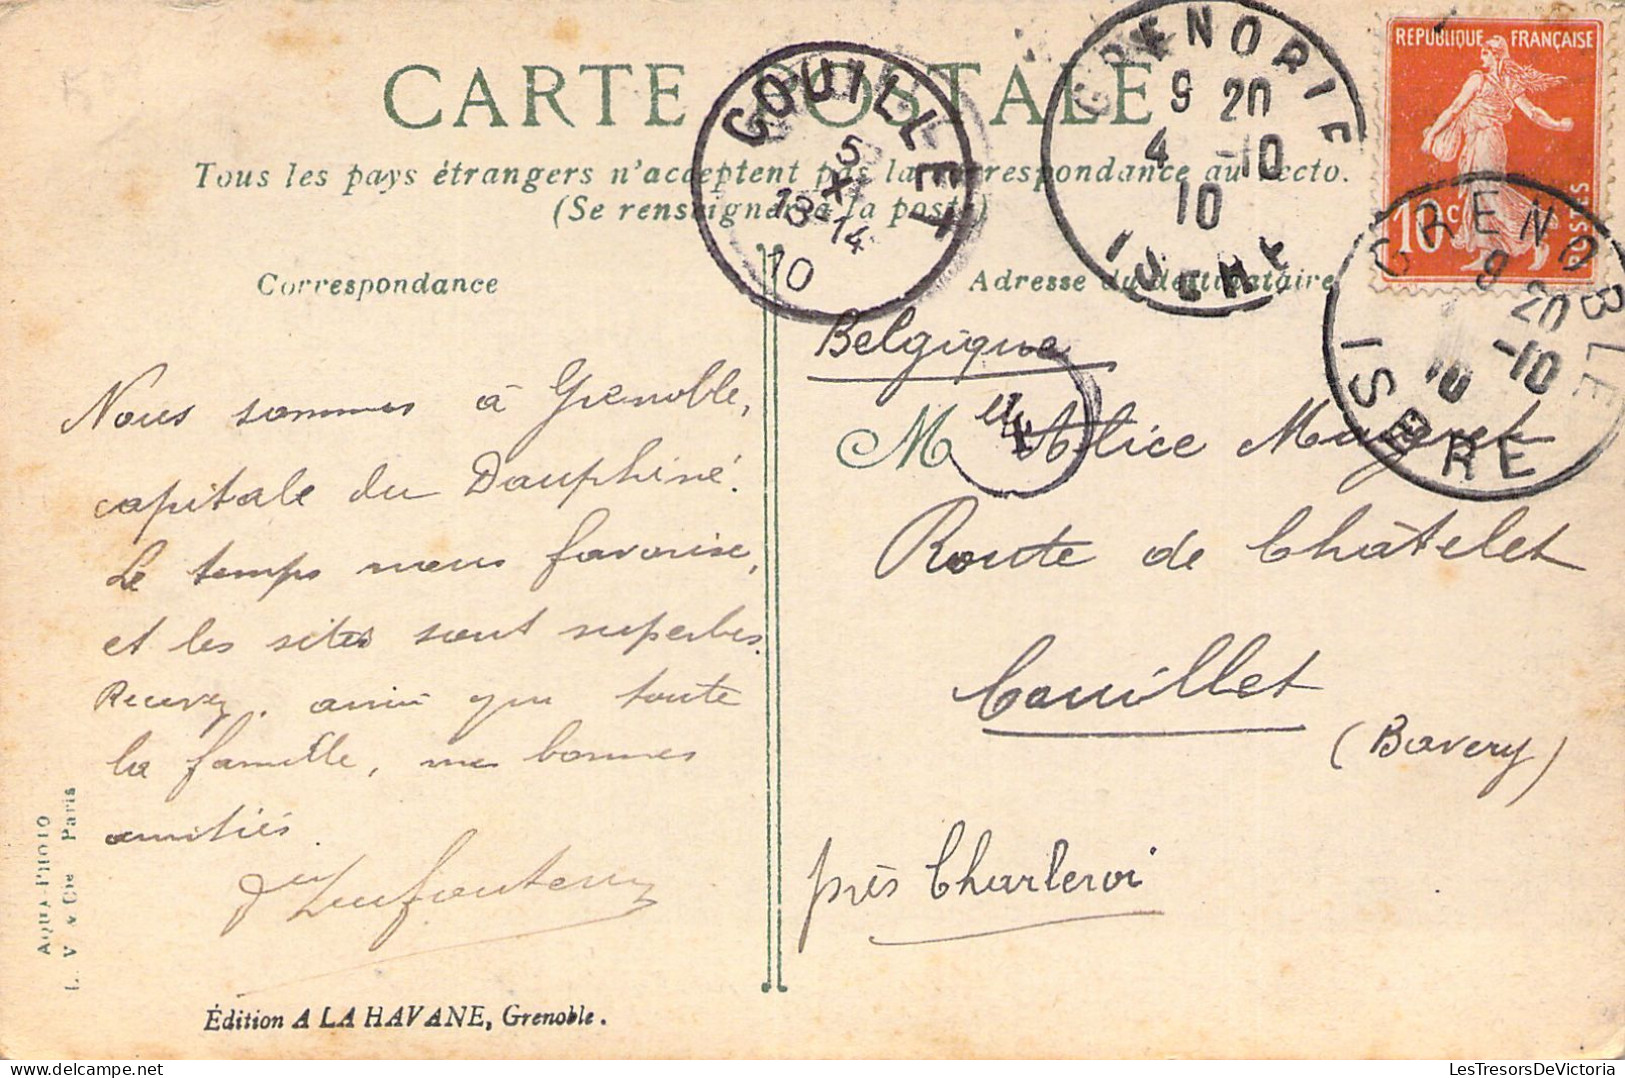 CARTE POSTALE
Tous les pays étrangers n'acceptent pas la correspondance au recto.
(Se renseigner à la poste)
Correspondance
Adresse du destinataire
REPUBLIQUE FRANÇAISE
10c POSTES
COUILLET
5 XI
13-14
10
GRENOBLE
9 20
4 -10
10
ISERE
GRENOBLE
9 20
-10
10
ISERE
Nous sommes à Grenoble,
capitale du Dauphiné.
Le temps nous favorise,
et les sites sont superbes.
Recevez, ainsi que toute
la famille, mes bonnes
amitiés.
Belgique
Melle Alice
Route de Châtelet
Couillet
(Bavery)
près Charleroi
AQUA-PHOTO
L. V. & Cie Paris
Édition A LA HAVANE, Grenoble.
LesTresorsDeVictoria